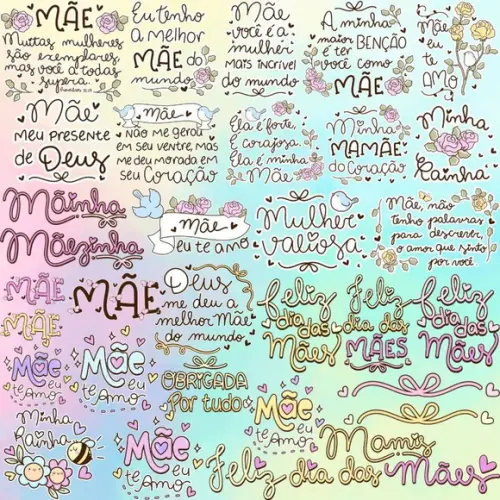 MÃE
Muitas mulheres
são exemplares,
mas você a todas
supera.
Eu tenho
a melhor
MÃE do
mundo
Mãe
você é a
mulher
MAIS INCRÍVEL
do mundo
A minha
maior BENÇÃO
é ter VOCÊ
como
MÃE
Mãe
eu te
AMO
Mãe
MEU PRESENTE
de Deus
Mãe
NÃO ME GEROU
EM SEU VENTRE, MAS
ME DEU MORADA EM
SEU CORAÇÃO
Ela é forte,
É corajosa.
Ela é minha
Mãe
Minha
MAMÃE
DO
CORAÇÃO
Minha
Rainha
Mãinha
Mãezinha
Mãe
eu te amo
Mulher
valiosa
Mãe, não
tenho palavras
para descrever,
o amor que sinto
por você
MÃE
MÃE
MÃE
Deus
me deu a
melhor Mãe
do mundo
Feliz
dia das
Mães
Feliz
dia das
MÃES
Feliz
dia das
Mães
Mãe
eu
te Amo
Mãe
eu
te Amo
OBRIGADA
por tudo
Mãe
eu
te Amo
Minha
Rainha
Mãe
eu
te Amo
Mamis
Feliz dia das Mães